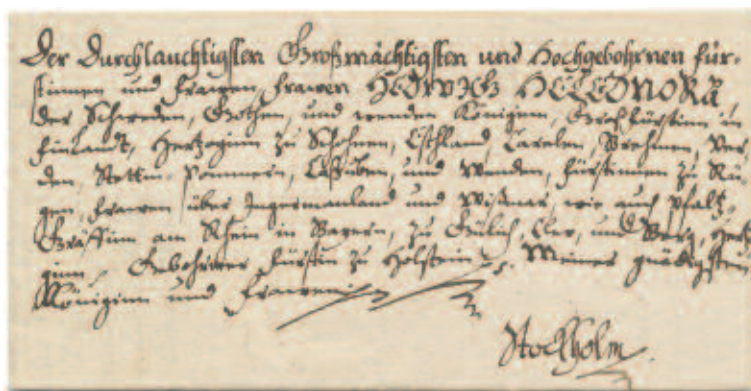 Der Durchlauchtigsten Großmächtigsten und Hochgebohrnen Für-
stinnen und Frawen, Frawen HEDWIG ELEONORA,
der Schweden, Gothen, und wenden Königinn, Großfürstinn in
Finlandt, Hertzoginn zu Schohnen, Ehstland, Carelen, Brehmen, Ver-
den, Stettin-Pommern, Caßuben, und Wenden, Fürstinnen zu Rü-
gen, Frawen über Ingermanland und Wißmar, wie auch Pfaltz
Gräffinn am Rhein in Bayern, zu Gülich, Clev, und Berg, Hertzo
ginn, Gebohrner Fürstin zu Holstein Meiner gnädigsten
Königinn und Frawen
Stockholm.